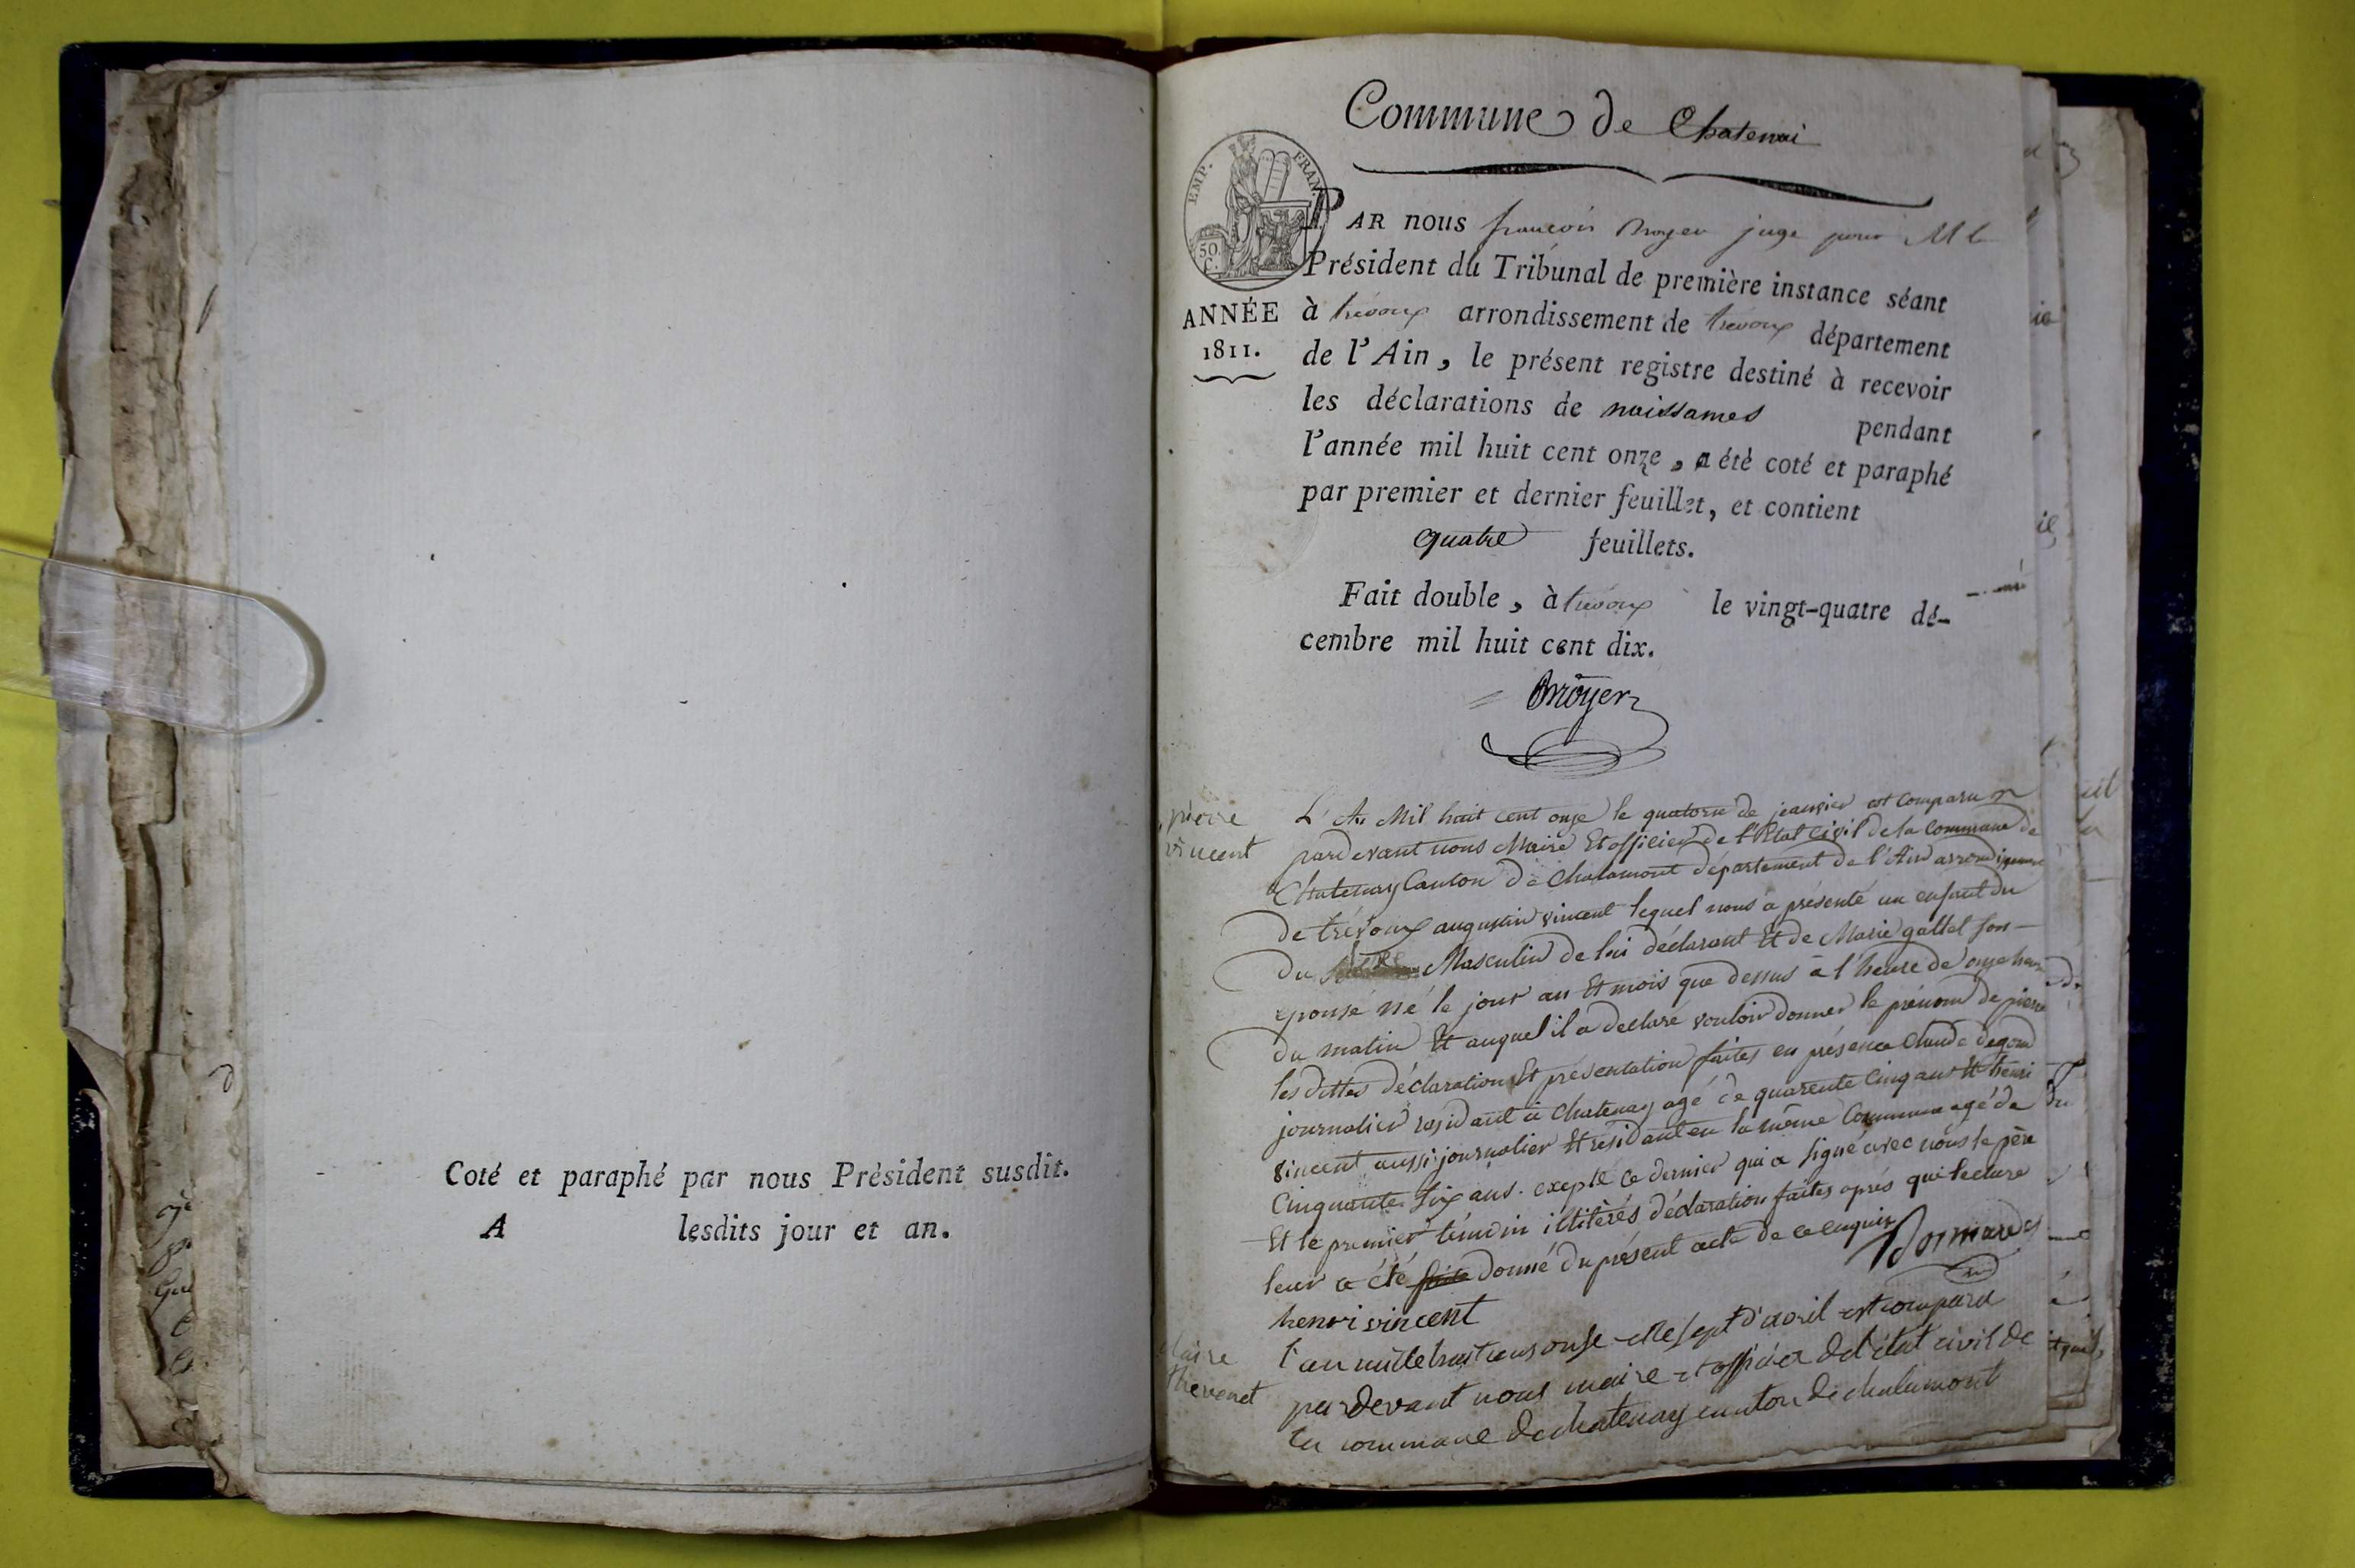 Coté et paraphé par nous Président susdit.
A lesdits jour et an.
Commune de Chatenai
EMP. FRAN.
50 C.
ANNÉE
1811.
PAR nous françois juge pour M le
Président du Tribunal de première instance séant
à trévoux arrondissement de trevoux département
de l'Ain, le présent registre destiné à recevoir
les déclarations de naissances pendant
l'année mil huit cent onze, a été coté et paraphé
par premier et dernier feuillet, et contient
quatre feuillets.
Fait double, à trévoux le vingt-quatre dé-
cembre mil huit cent dix.
pierre
vincent
L'An Mil huit cent onze le quatorze de jeanvier est comparu
pardevant nous Maire Et officier de l'Etat Civil de la Commune de
Chatenay Canton de Chalamont département de l'Ain
De trévoux augustin vincent lequel nous a présenté un enfant du
Du Masculin de lui déclarant Et de Marie gallet son
épouse né le jour an Et mois que dessus à l'heure de onze heure
Du matin Et auquel il a déclaré vouloir donner le prénom de pierre
les dittes déclaration Et présentation faites en présence Claude
journalier résidant à Chatenay agé de quarente Cinq ans Et henri
vincent aussi journalier Et résidant en la même Commune agé de
Cinquante six ans. exepté ce dernier qui a signé avec nous le père
Et le premier témoin illitérés déclaration faites après que lecture
leur a été faite donné du présent acte de ce enquis
henri vincent
claire
thevenet
l'an mille huit cens onse et le sept d'avril est comparu
par devant nous maire et officier de l'état civil de
la commune de chatenay canton de chalamont